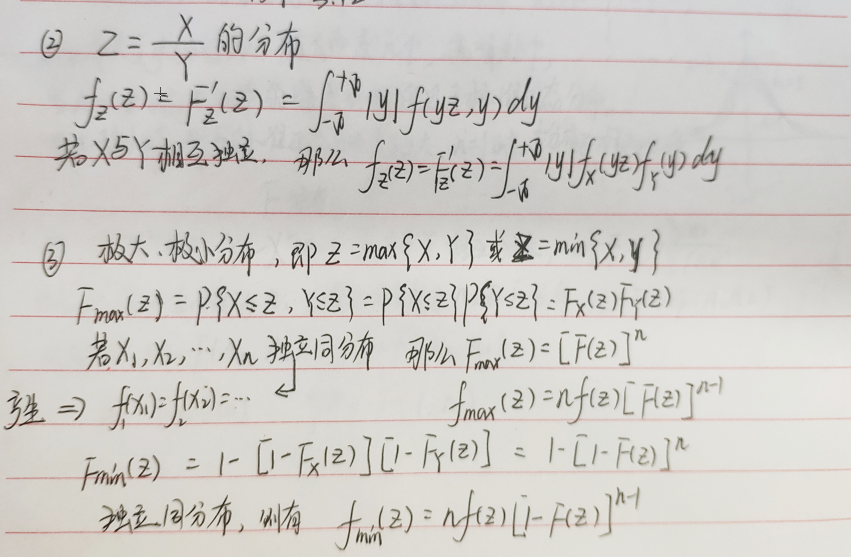 ② Z = X/Y 的分布
f_Z(z) = F_Z'(z) = ∫_{-∞}^{+∞} |y| f(yz, y) dy
若X与Y相互独立, 那么 f_Z(z) = F_Z'(z) = ∫_{-∞}^{+∞} |y| f_X(yz) f_Y(y) dy
③ 极大、极小分布, 即 Z = max{X, Y} 或 = min{X, Y}
F_max(z) = P{X≤z, Y≤z} = P{X≤z}P{Y≤z} = F_X(z)F_Y(z)
若X₁, X₂, ..., Xn 独立同分布 那么 F_max(z) = [F(z)]^n
⇒ f₁(x₁) = f₂(x₂) = ... ↵ f_max(z) = n f(z) [F(z)]^{n-1}
F_min(z) = 1 - [1 - F_X(z)][1 - F_Y(z)] = 1 - [1 - F(z)]^n
独立同分布, 则有 f_min(z) = n f(z) [1 - F(z)]^{n-1}